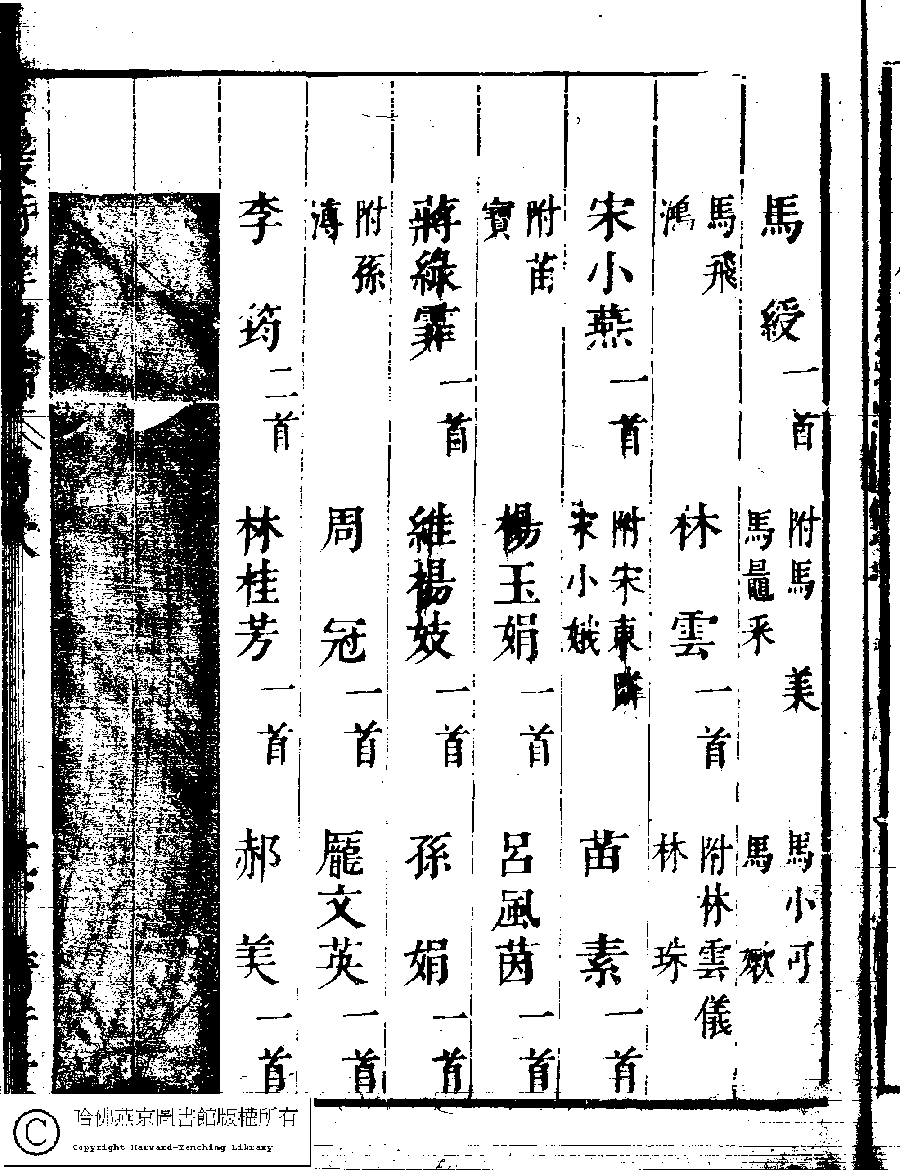 馬　綬一首　附馬　美　馬小可
馬鼂采　馬
馬飛鴻　林　雲一首　附林雲儀
林　珠
宋小燕一首　附宋東
宋小娥　苗　素一首
附苗寶　楊玉娟一首　呂風茵一首
蔣綠霏一首　維楊妓一首　孫　娟一首
附孫溥　周　冠一首　龎文英一首
李　筠二首　林桂芳一首　郝　美一首
哈佛燕京圖書館版權所有
Copyright Harvard-Yenching Library